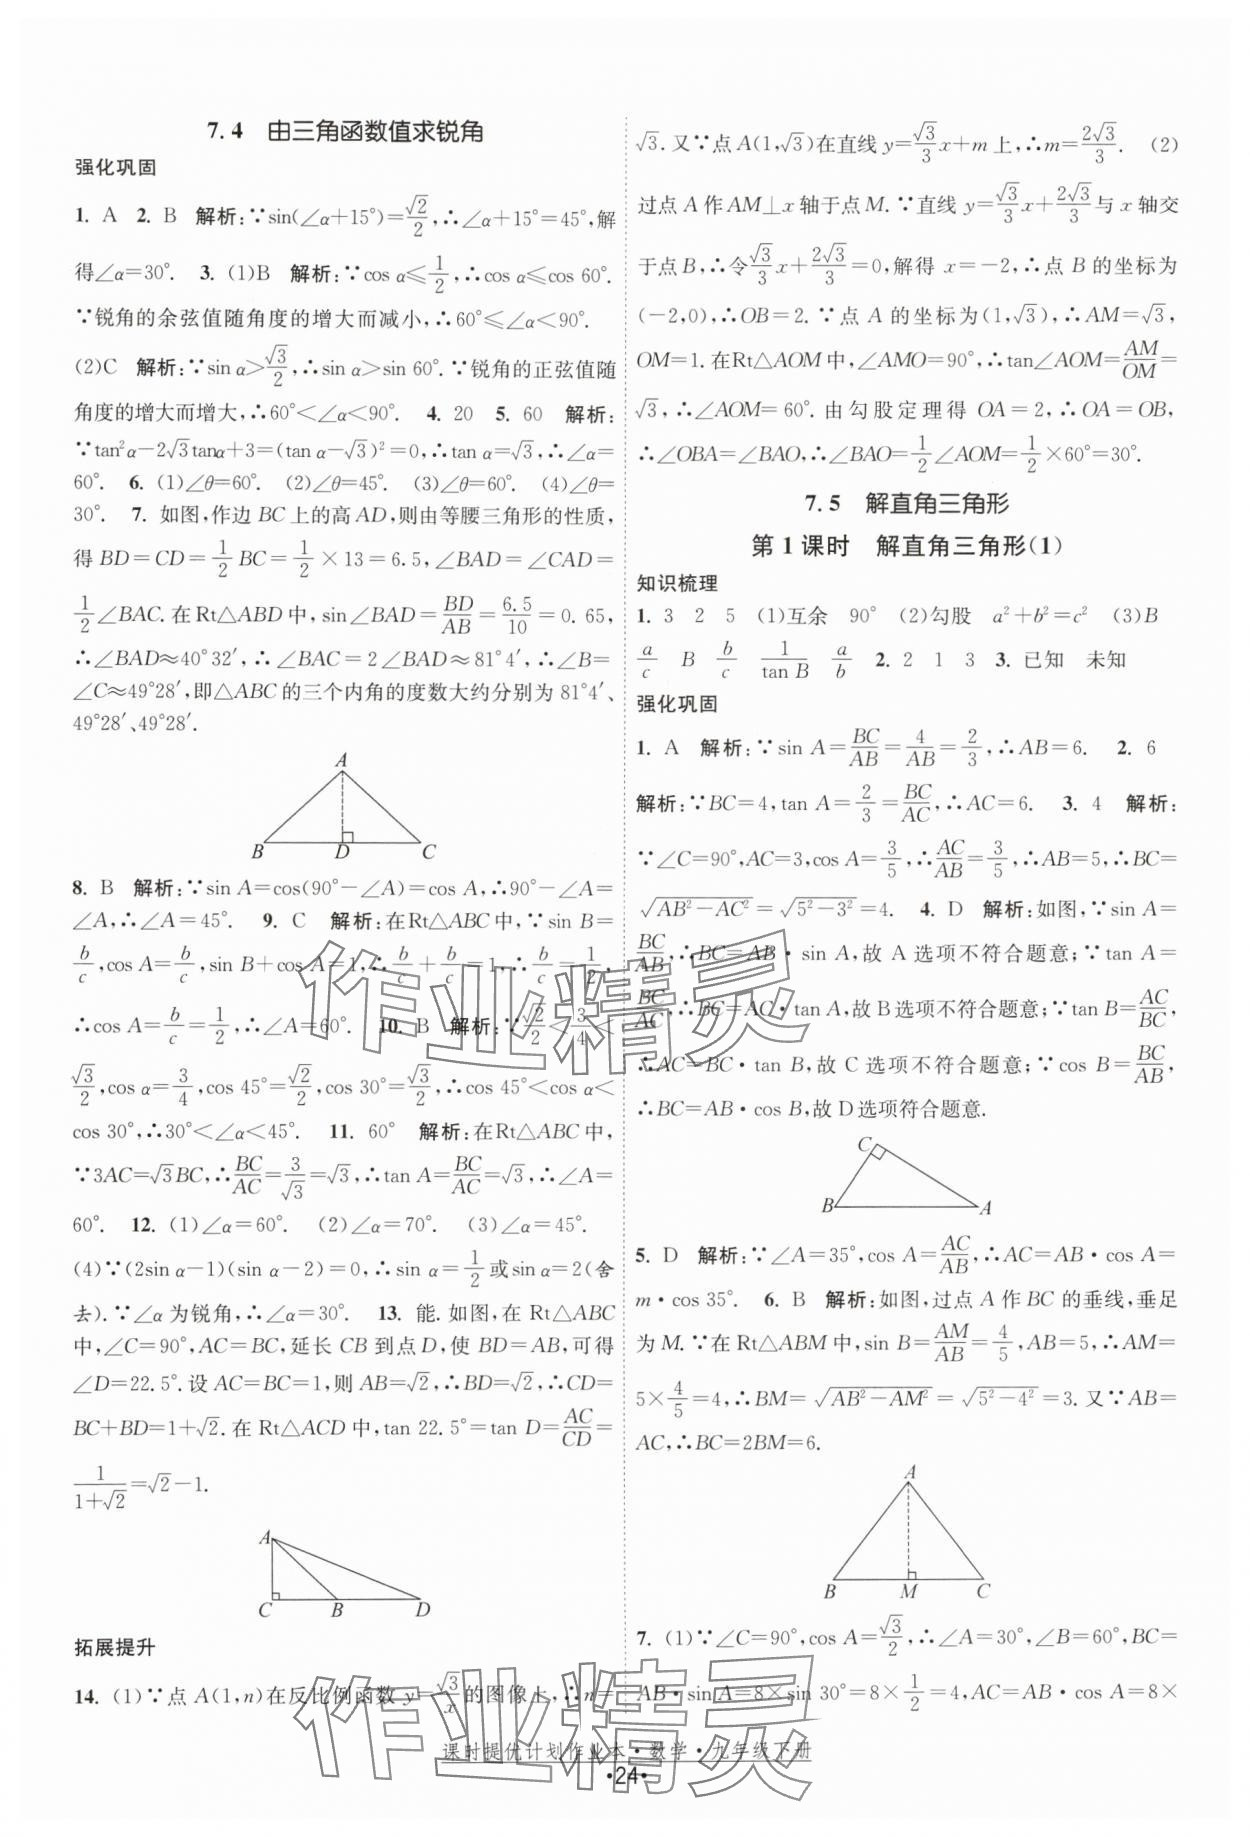 7.4 由三角函数值求锐角
强化巩固
1. A 2. B 解析:∵sin(∠α+15°)=√2/2,∴∠α+15°=45°,解
得∠α=30°. 3. (1)B 解析:∵cos α≤1/2,∴cos α≤cos 60°.
∵锐角的余弦值随角度的增大而减小,∴60°≤∠α<90°.
(2)C 解析:∵sin α>√3/2,∴sin α>sin 60°.∵锐角的正弦值随
角度的增大而增大,∴60°<∠α<90°. 4. 20 5. 60 解析:
∵tan²α-2√3tanα+3=(tan α-√3)²=0,∴tan α=√3,∴∠α=
60°. 6. (1)∠θ=60°. (2)∠θ=45°. (3)∠θ=60°. (4)∠θ=
30°. 7. 如图,作边 BC 上的高 AD,则由等腰三角形的性质,
得 BD=CD=1/2 BC=1/2×13=6.5,∠BAD=∠CAD=
1/2∠BAC.在Rt△ABD中,sin∠BAD=BD/AB=6.5/10=0.65,
∴∠BAD≈40°32′,∴∠BAC=2∠BAD≈81°4′,∴∠B=
∠C≈49°28′,即△ABC的三个内角的度数大约分别为81°4′、
49°28′、49°28′.
A
B D C
8. B 解析:∵sin A=cos(90°-∠A)=cos A,∴90°-∠A=
∠A,∴∠A=45°. 9. C 解析:在Rt△ABC中,∵sin B=
b/c,cos A=b/c,sin B+cos A=1,∴b/c+b/c=1,∴b/c=1/2,
∴cos A=b/c=1/2,∴∠A=60°. 10. B 解析:∵√2/2<3/4<
√3/2,cos α=3/4,cos 45°=√2/2,cos 30°=√3/2,∴cos 45°<cos α<
cos 30°,∴30°<∠α<45°. 11. 60° 解析:在Rt△ABC中,
∵3AC=√3BC,∴BC/AC=3/√3=√3,∴tan A=BC/AC=√3,∴∠A=
60°. 12. (1)∠α=60°. (2)∠α=70°. (3)∠α=45°.
(4)∵(2sin α-1)(sin α-2)=0,∴sin α=1/2或sin α=2(舍
去).∵∠α为锐角,∴∠α=30°. 13. 能.如图,在 Rt△ABC
中,∠C=90°,AC=BC,延长 CB 到点 D,使 BD=AB,可得
∠D=22.5°.设 AC=BC=1,则 AB=√2,∴BD=√2,∴CD=
BC+BD=1+√2.在 Rt△ACD 中,tan 22.5°=tan D=AC/CD=
1/(1+√2)=√2-1.
A
C B D
拓展提升
14. (1)∵点 A(1,n)在反比例函数 y=√3/x的图像上,∴n=
√3.又∵点A(1,√3)在直线 y=√3/3 x+m上,∴m=2√3/3. (2)
过点 A 作 AM⊥x 轴于点 M.∵直线 y=√3/3 x+2√3/3与 x 轴交
于点 B,∴令√3/3 x+2√3/3=0,解得 x=-2,∴点 B 的坐标为
(-2,0),∴OB=2.∵点 A 的坐标为(1,√3),∴AM=√3,
OM=1.在Rt△AOM中,∠AMO=90°,∴tan∠AOM=AM/OM=
√3,∴∠AOM=60°.由勾股定理得 OA=2,∴OA=OB,
∴∠OBA=∠BAO,∴∠BAO=1/2∠AOM=1/2×60°=30°.
7.5 解直角三角形
第1课时 解直角三角形(1)
知识梳理
1. 3 2 5 (1)互余 90° (2)勾股 a²+b²=c² (3)B
a/c B b/c 1/tan B a/b 2. 2 1 3 3. 已知 未知
强化巩固
1. A 解析:∵sin A=BC/AB=4/AB=2/3,∴AB=6. 2. 6
解析:∵BC=4,tan A=2/3=BC/AC,∴AC=6. 3. 4 解析:
∵∠C=90°,AC=3,cos A=3/5,∴AC/AB=3/5,∴AB=5,∴BC=
√(AB²-AC²)=√(5²-3²)=4. 4. D 解析:如图,∵sin A=
BC/AB,∴BC=AB·sin A,故 A 选项不符合题意;∵tan A=
BC/AC,∴BC=AC·tan A,故 B 选项不符合题意;∵tan B=AC/BC,
∴AC=BC·tan B,故 C 选项不符合题意;∵cos B=BC/AB,
∴BC=AB·cos B,故 D 选项符合题意.
C
B A
5. D 解析:∵∠A=35°,cos A=AC/AB,∴AC=AB·cos A=
m·cos 35°. 6. B 解析:如图,过点 A 作 BC 的垂线,垂足
为 M.∵在 Rt△ABM 中,sin B=AM/AB=4/5,AB=5,∴AM=
5×4/5=4,∴BM=√(AB²-AM²)=√(5²-4²)=3.又∵AB=
AC,∴BC=2BM=6.
A
B M C
7. (1)∵∠C=90°,cos A=√3/2,∴∠A=30°,∠B=60°,BC=
AB·sin A=8×sin 30°=8×1/2=4,AC=AB·cos A=8×
课时提优计划作业本·数学·九年级下册
·24·
作业精灵
作业精灵